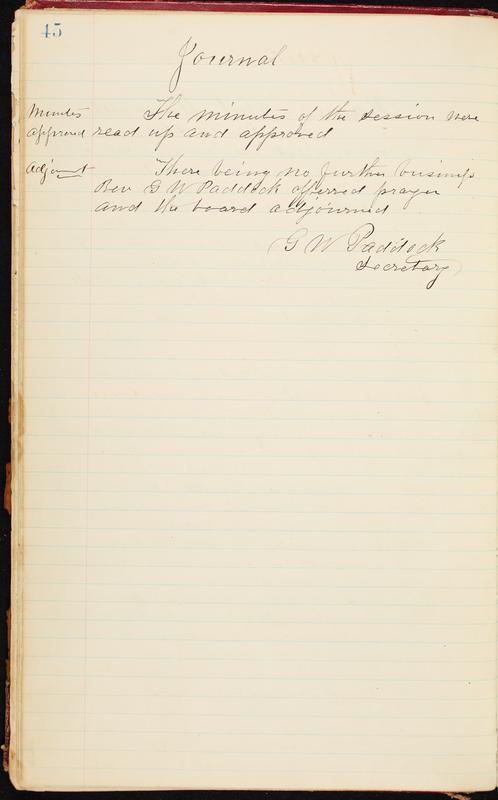 45
Journal
Minutes The minutes of the session were
approved read up and approved
Adjornt There being no further business
Rev G W Paddock offerred prayer
and the board adjourned
G W Paddock
Secretary